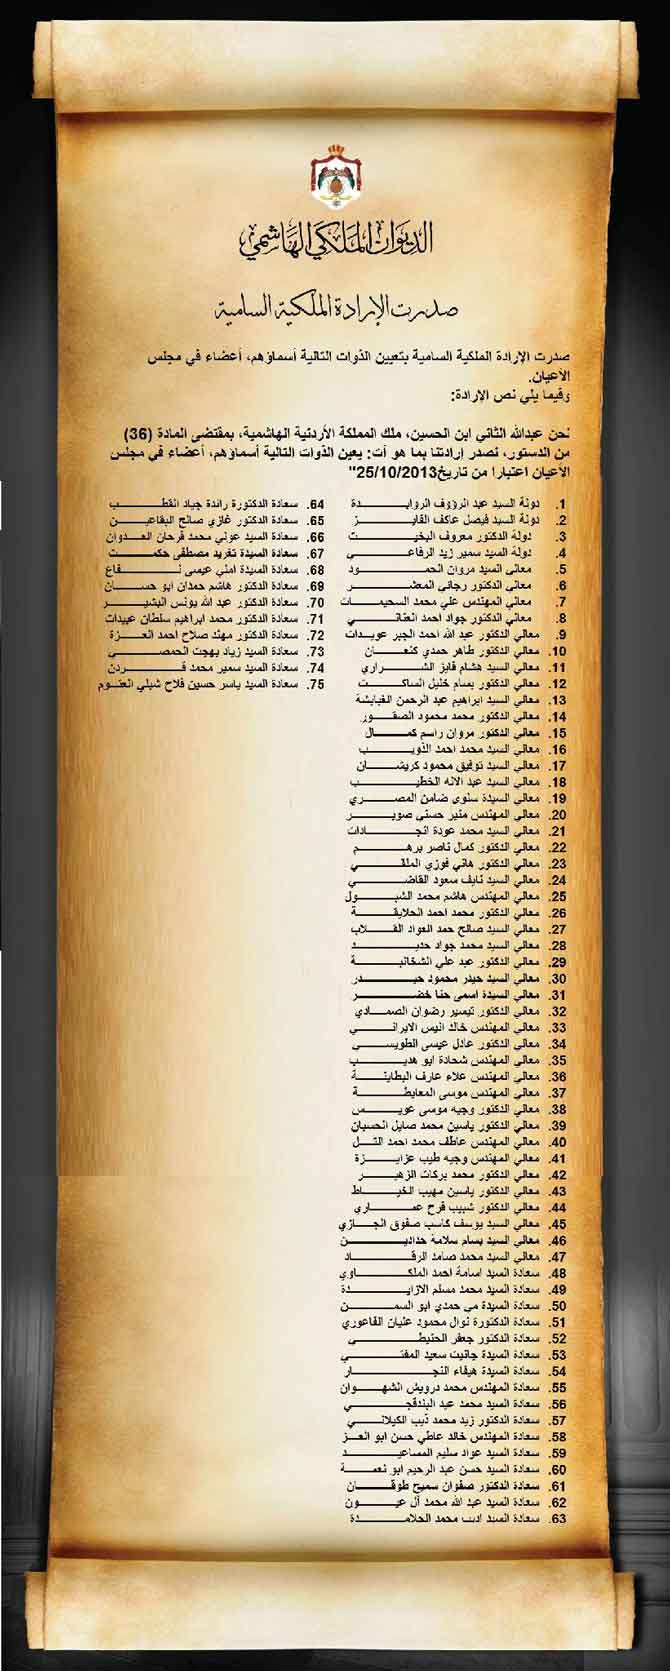 الديوان الملكي الهاشمي
صدرت الإرادة الملكية السامية
صدرت الإرادة الملكية السامية بتعيين الذوات التالية أسماؤهم، أعضاء في مجلس
الأعيان.
وفيما يلي نص الإرادة:
نحن عبدالله الثاني ابن الحسين، ملك المملكة الأردنية الهاشمية، بمقتضى المادة (36)
من الدستور، نصدر إرادتنا بما هو آت: يعين الذوات التالية أسماؤهم، أعضاء في مجلس
الأعيان اعتبارا من تاريخ25/10/2013"
1. دولة السيد عبد الرؤوف الروابدة
2. دولة السيد فيصل عاكف الفايز
3. دولة الدكتور معروف البخيت
4. دولة السيد سمير زيد الرفاعي
5. معالي السيد مروان الحمود
6. معالي الدكتور رجائي المعشر
7. معالي المهندس علي محمد السحيمات
8. معالي الدكتور جواد احمد العناني
9. معالي الدكتور عبد الله احمد الجبر عويدات
10. معالي الدكتور طاهر حمدي كنعان
11. معالي السيد هشام فايز الشراري
12. معالي الدكتور بسام خليل الساكت
13. معالي السيد ابراهيم عبد الرحمن الغبابشة
14. معالي الدكتور محمد محمود الصقور
15. معالي الدكتور مروان راسم كمال
16. معالي السيد محمد احمد الذويب
17. معالي السيد توفيق محمود كريشان
18. معالي السيد عبد الاله الخطيب
19. معالي السيدة سلوى ضامن المصري
20. معالي المهندس منير حسني صوبر
21. معالي السيد محمد عودة النجادات
22. معالي الدكتور كمال ناصر
23. معالي الدكتور هاني فوزي الملقي
24. معالي السيد نايف سعود القاضي
25. معالي المهندس هاشم محمد الشبول
26. معالي الدكتور محمد احمد الحلايقة
27. معالي السيد صالح حمد العواد القلاب
28. معالي السيد محمد جواد حديد
29. معالي الدكتور عبد علي الشخانبة
30. معالي السيد حيدر محمود حيدر
31. معالي السيدة اسمى حنا خضر
32. معالي الدكتور تيسير رضوان الصمادي
33. معالي المهندس خالد انيس الايراني
34. معالي الدكتور عادل عيسى الطويسي
35. معالي المهندس شحادة ابو هديب
36. معالي المهندس علاء عارف البطاينة
37. معالي المهندس موسى المعايطة
38. معالي الدكتور وجيه موسى عويس
39. معالي الدكتور ياسين محمد صايل الحسبان
40. معالي المهندس عاطف محمد احمد التل
41. معالي المهندس وجيه طيب عزايزة
42. معالي الدكتور محمد بركات الزهير
43. معالي الدكتور ياسين مهيب الخياط
44. معالي الدكتور شبيب فرح عماري
45. معالي السيد يوسف كاسب صفوق الجازي
46. معالي السيد بسام سلامة حدادين
47. معالي السيد محمد صامد الرقاد
48. سعادة السيد اسامة احمد الملكاوي
49. سعادة السيد محمد مسلم الازايدة
50. سعادة السيدة مي حمدي ابو السمن
51. سعادة الدكتورة نوال محمود عليان الفاعوري
52. سعادة الدكتور جعفر الحنيطي
53. سعادة السيدة جانيت سعيد المفتي
54. سعادة السيدة هيفاء النجار
55. سعادة المهندس محمد درويش الشهوان
56. سعادة السيد محمد عبد البندقجي
57. سعادة الدكتور زيد محمد ذيب الكيلاني
58. سعادة المهندس خالد عاطي حسن ابو العز
59. سعادة السيد عواد سليم المساعيد
60. سعادة السيد حسن عبد الرحيم ابو نعمة
61. سعادة الدكتور صفوان سميح طوقان
62. سعادة السيد عبد الله محمد آل عيون
63. سعادة السيد اديب محمد الحلامدة
64. سعادة الدكتورة رائدة جياد القطب
65. سعادة الدكتور غازي صالح البقاعين
66. سعادة السيد عوني محمد فرحان العدوان
67. سعادة السيدة تغريد مصطفى حكمت
68. سعادة السيدة املي عيسى نفاع
69. سعادة الدكتور هاشم حمدان ابو حسان
70. سعادة الدكتور عبد الله يونس البشير
71. سعادة الدكتور محمد ابراهيم سلطان عبيدات
72. سعادة الدكتور مهند صلاح احمد العزة
73. سعادة السيد زياد بهجت الحمصي
74. سعادة السيد سمير محمد قردن
75. سعادة السيد ياسر حسين فلاح شبلي العتوم